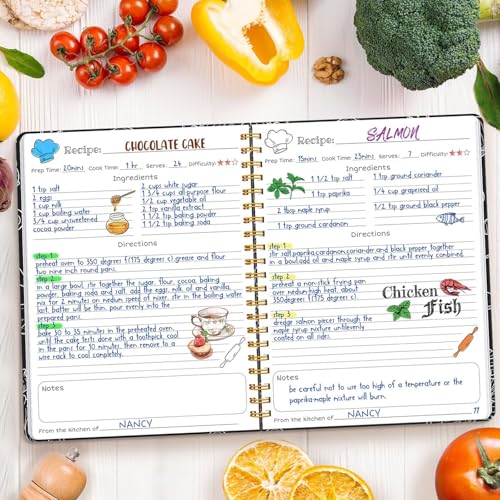 Recipe: CHOCOLATE CAKE
Prep Time: 20mins Cook Time: 1 hr Serves: 24 Difficulty:
Ingredients
1 tsp salt
2 eggs
1 cup milk
1 cup boiling water
3/4 cup unsweetened
cocoa powder
2 cups white sugar
1 3/4 cups all-purpose flour
1/2 cup vegetable oil
2 tsp vanilla extract
1 1/2 tsp baking powder
1 1/2 tsp baking soda
Directions
step 1
preheat oven to 350 degrees f(175 degrees c). grease and flour
two nine inch round pans.
step 2
in a large bowl, stir together the sugar, flour, cocoa, baking
powder, baking soda and salt. add the eggs, milk, oil and vanilla,
mix for 2 minutes on medium speed of mixer. stir in the boiling water
last. batter will be thin. pour evenly into the
prepared pans.
step 3
bake 30 to 35 minutes in the preheated oven,
until the cake tests done with a toothpick. cool
in the pans for 10 minutes, then remove to a
wire rack to cool completely.
Notes
From the Kitchen of NANCY
Recipe: SALMON
Prep Time: 15mins Cook Time: 25mins Serves: 7 Difficulty:
Ingredients
1 1/2 tsp salt
1 tsp paprika
2 tbsp maple syrup
1 tsp ground cardamon
1 tsp ground coriander
1/4 cup grapeseed oil
1/2 tsp ground black pepper
Directions
step 1
stir salt, paprika, cardamon, coriander, and black pepper together
in a bowl. add oil and maple syrup and stir until evenly combined.
step 2
preheat a non-stick frying pan
over medium high heat, about
350degrees f(175 degrees c).
step 3
dredge salmon pieces through the
maple syrup mixture until evenly
coated on all sides.
Chicken
Fish
Notes
be careful not to use too high of a temperature or the
paprika-maple mixture will burn.
From the Kitchen of NANCY
11